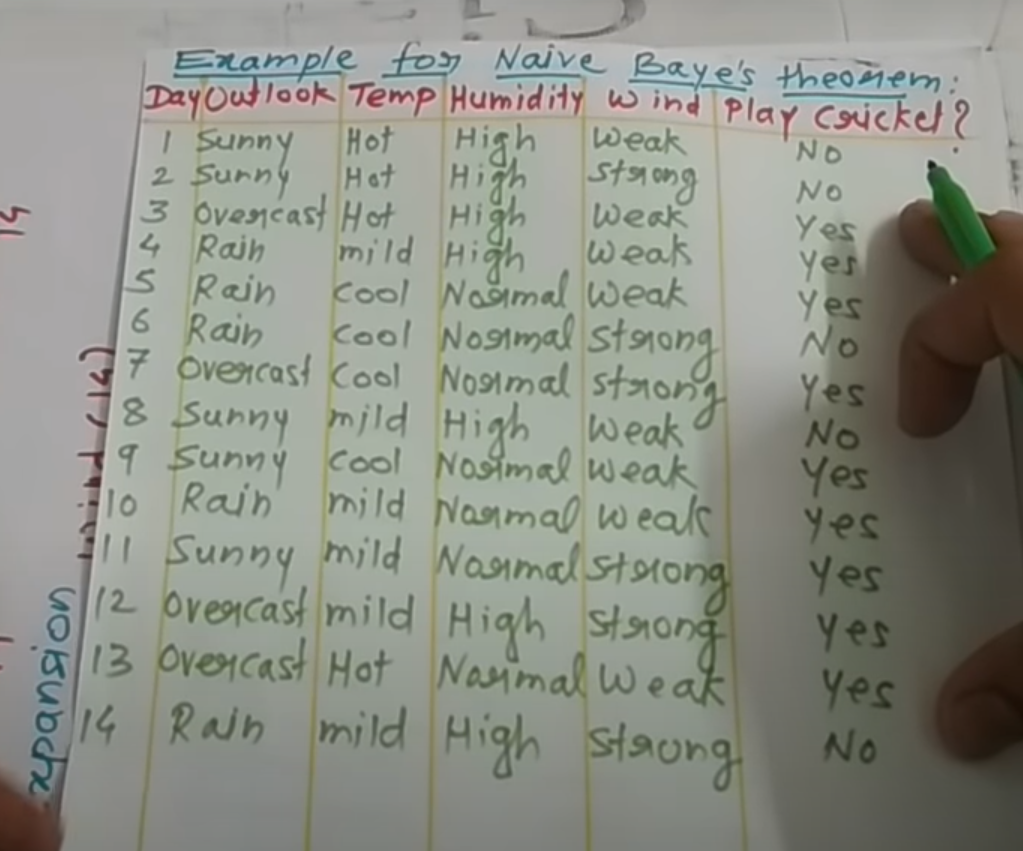 Example for Naive Baye's theorem:
Day Outlook Temp Humidity Wind Play Cricket?
1 Sunny Hot High Weak No
2 Sunny Hot High Strong No
3 Overcast Hot High Weak Yes
4 Rain mild High Weak Yes
5 Rain Cool Normal Weak Yes
6 Rain Cool Normal Strong No
7 Overcast Cool Normal Strong Yes
8 Sunny mild High Weak No
9 Sunny Cool Normal Weak Yes
10 Rain mild Normal Weak Yes
11 Sunny mild Normal Strong Yes
12 Overcast mild High Strong Yes
13 Overcast Hot Normal Weak Yes
14 Rain mild High Strong No